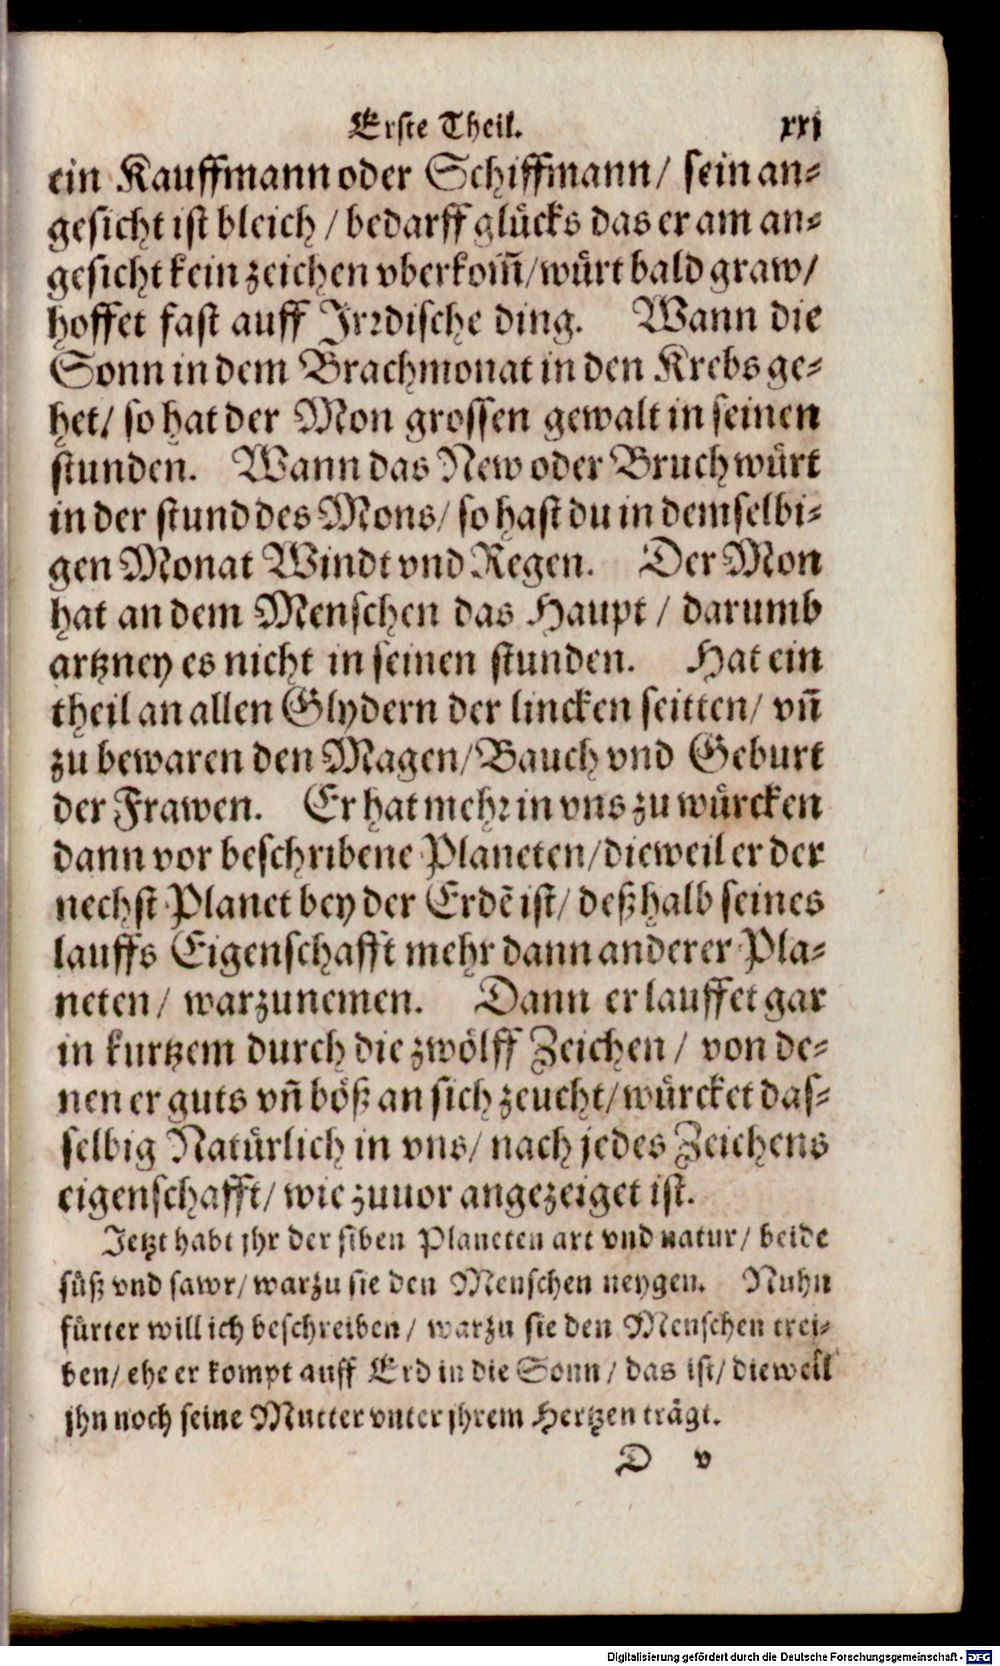 Erste Theil. xxj
ein Kauffmann oder Schiffmann/ sein an-
gesicht ist bleich / bedarff glücks das er am an-
gesicht kein zeichen vberkom̃/ würt bald graw/
hoffet fast auff Jrꝛdische ding. Wann die
Sonn in dem Brachmonat in den Krebs ge-
het/ so hat der Mon grossen gewalt in seinen
stunden. Wann das New oder Bruch würt
in der stund des Mons/ so hast du in demselbi-
gen Monat Windt vnd Regen. Der Mon
hat an dem Menschen das Haupt / darumb
artzney es nicht in seinen stunden. Hat ein
theil an allen Glydern der lincken seitten/ vñ
zu bewaren den Magen/ Bauch vnd Geburt
der Frawen. Er hat mehꝛ in vns zu würcken
dann vor beschribene Planeten/ dieweil er der
nechst Planet bey der Erdẽ ist/ deßhalb seines
lauffs Eigenschafft mehr dann anderer Pla-
neten/ warzunemen. Dann er lauffet gar
in kurtzem durch die zwölff Zeichen / von de-
nen er guts vñ böß an sich zeucht/ würcket das-
selbig Natürlich in vns/ nach jedes Zeichens
eigenschafft/ wie zuuor angezeiget ist.
Jetzt habt jhr der siben Planeten art vnd natur/ beide
süß vnd sawr/ warzu sie den Menschen neygen. Nuhn
fürter will ich beschreiben/ warzu sie den Menschen trei-
ben/ ehe er kompt auff Erd in die Sonn / das ist/ dieweil
jhn noch seine Mutter vnter jhrem Hertzen trägt.
D v
Digitalisierung gefördert durch die Deutsche Forschungsgemeinschaft - DFG